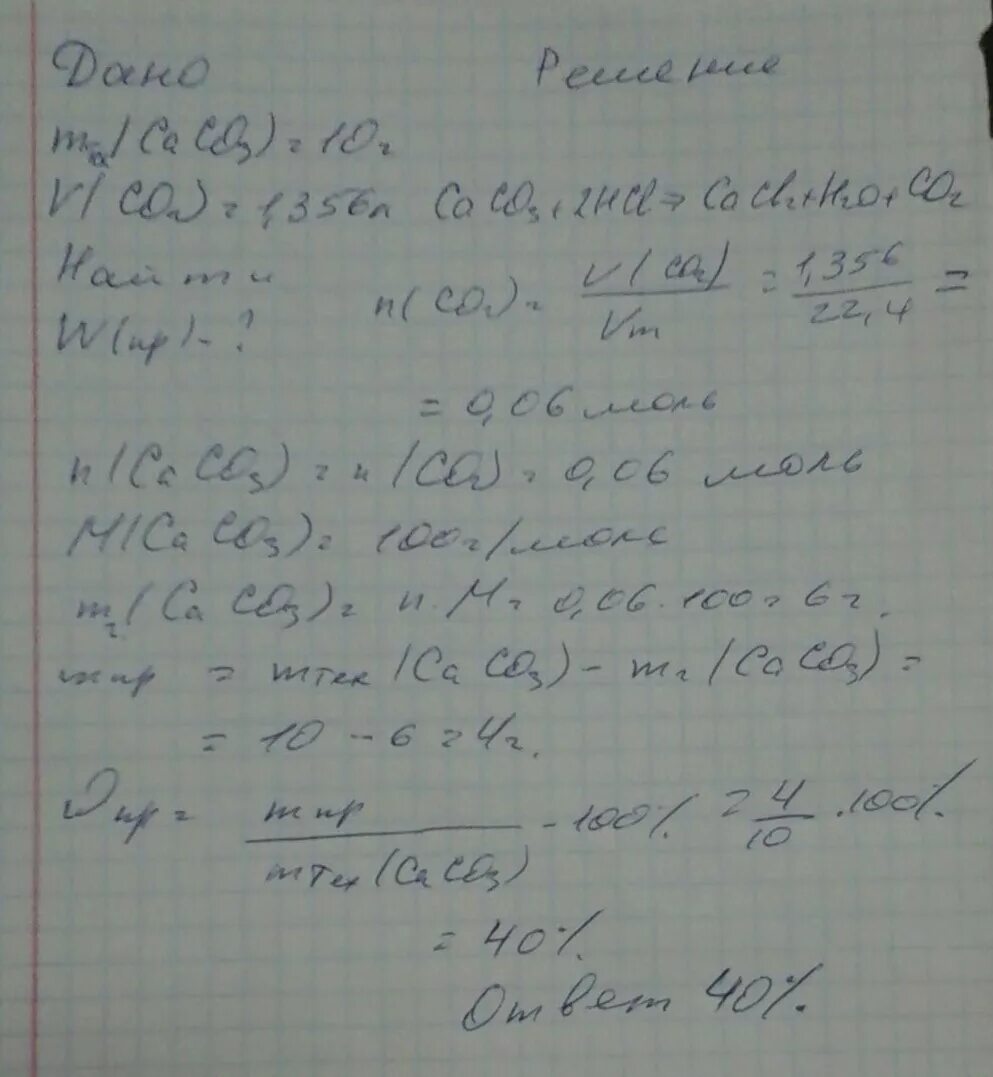 Дано Решение
m_тех(CaCO₃) = 10г
V(CO₂) = 1,356л CaCO₃ + 2HCl = CaCl₂ + H₂O + CO₂
Найти
W(пр) - ?
n(CO₂) = V(CO₂) / Vm = 1,356 / 22,4 =
= 0,06 моль
n(CaCO₃) = n(CO₂) = 0,06 моль
M(CaCO₃) = 100г/моль
m_г(CaCO₃) = n · M = 0,06 · 100 = 6г.
mпр = mтех(CaCO₃) - m_г(CaCO₃) =
= 10 - 6 = 4г.
ωпр = mпр / mтех(CaCO₃) · 100% = 4 / 10 · 100%
= 40%
Ответ 40%.